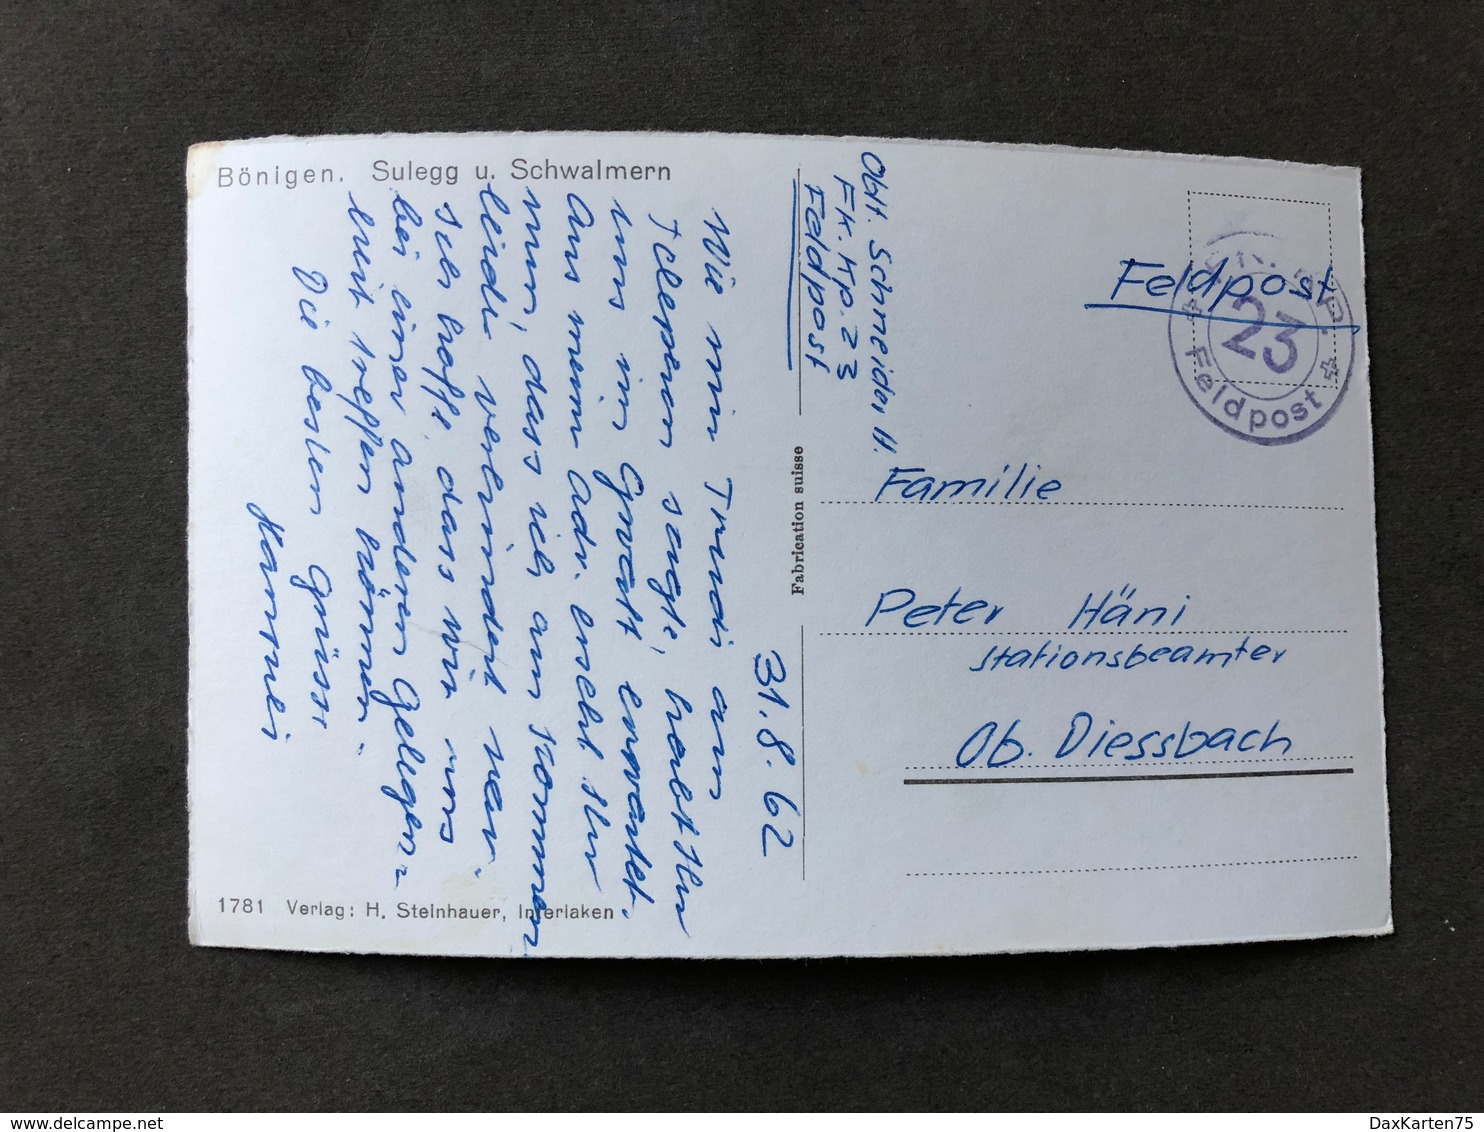 Bönigen. Sulegg u. Schwalmern
31.8.62
Wie mir Trudi am
Telephon sagte, habt Ihr
uns in Gwatt erwartet.
Aus meine Adr. erseht Ihr
nun, dass ich am kommen
leider verhindert war.
Ich hoffe, dass wir uns
bei einer anderen Gelegen-
heit treffen können.
Die besten Grüsse
Hansruei
1781 Verlag: H. Steinhauer, Interlaken
Fabrication suisse
Oblt. Schneider H.
Fk. Kp. 23
Feldpost
Feldpost
23
Feldpost
Familie
Peter Häni
Stationsbeamter
Ob. Diessbach
DaxKarten75